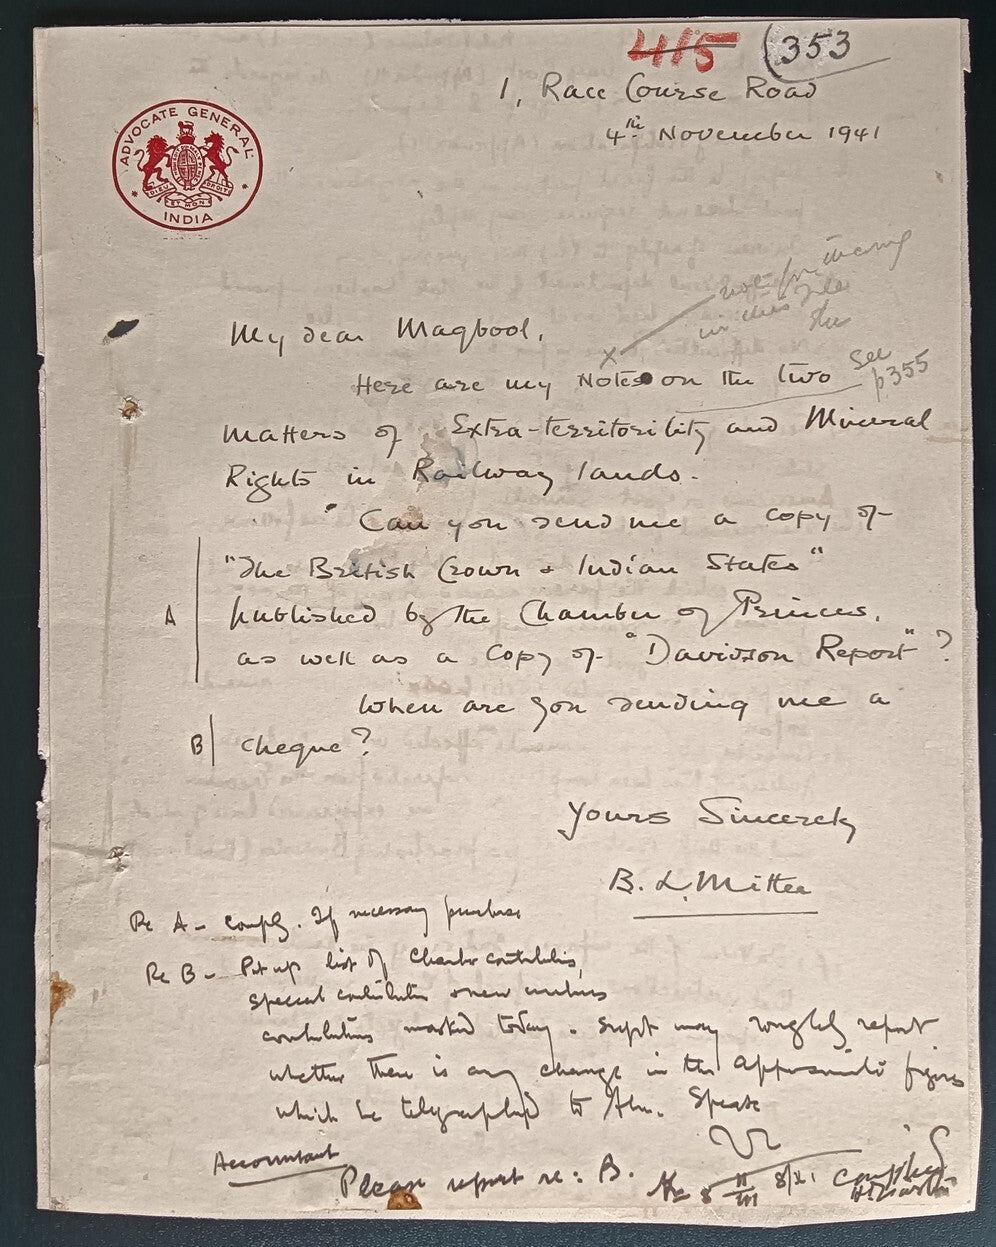 415 (353
1, Race Course Road
4th November 1941
ADVOCATE GENERAL
DIEU ET MON DROIT
INDIA
My dear Maqbool,
in this file
See
p355
Here are my Notes on the two
matters of Extra-territoriality and Mineral
Rights in Railway lands.
Can you send me a copy of
"The British Crown & Indian States"
A published by the Chamber of Princes,
as well as a copy of "Davidson Report"?
When are you sending me a
B cheque?
Yours Sincerely
B. L. Mitter
Re A - Comply. If necessary purchase
Re B - Put up list of
special
contributions marked today. Supt may roughly report
whether there is any change in the approximate figures
which he telegraphed to Speak
Accountant
Please report re: B.
8/21 Complied